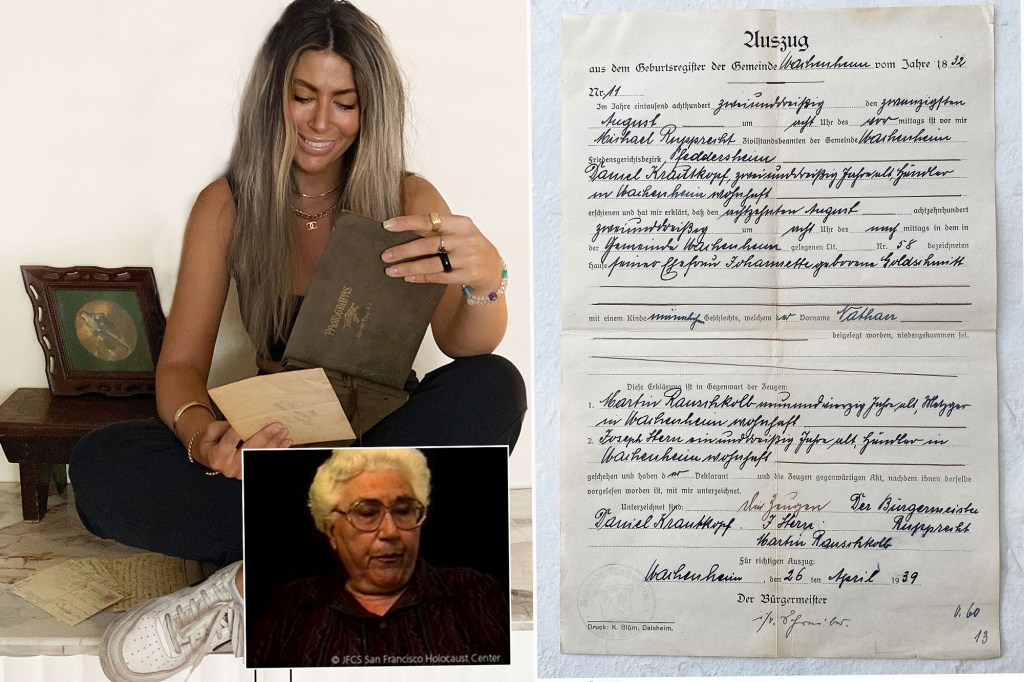 PHOTOGRAPHS
© JFCS San Francisco Holocaust Center
Auszug
aus dem Geburtsregister der Gemeinde Wachenheim vom Jahre 1832
Nr. 11
Im Jahre eintausend achthundert zweiunddreißig den zwanzigsten
August um acht Uhr des vor mittags ist vor mir
Michael Rupprecht Zivilstandsbeamten der Gemeinde Wachenheim
Friedensgerichtsbezirk Pfeddersheim
Daniel Krautkopf, zweiunddreißig Jahre alt, Händler
in Wachenheim wohnhaft
erschienen und hat mir erklärt, daß den achtzehnten August achtzehnhundert
zweiunddreißig um acht Uhr des nach mittags in dem in
der Gemeinde Wachenheim gelegenen Lit. Nr. 58 bezeichneten
Hause seiner Ehefrau Johannette geborene Goldschmitt
mit einem Kinde männlich Geschlechts, welchem er Vorname Nathan
beigelegt worden, niedergekommen sei.
Diese Erklärung ist in Gegenwart der Zeugen:
1. Martin Rauschkolb neunundvierzig Jahre alt, Metzger
in Wachenheim wohnhaft
2. Joseph Stern einunddreißig Jahre alt, Händler in
Wachenheim wohnhaft
geschehen und haben der Deklarant und die Zeugen gegenwärtigen Akt, nachdem ihnen derselbe
vorgelesen worden ist, mit mir unterzeichnet.
Unterzeichnet sind: Die Zeugen Der Bürgermeister
Daniel Krautkopf J Stern Rupprecht
Martin Rauschkolb
Für richtigen Auszug:
Wachenheim, den 26 ten April 1939
Der Bürgermeister
i/v. Schreiber.
Druck: K. Blüm, Dalsheim.
0.60
13